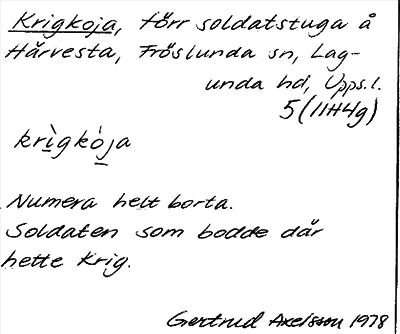 Krigkoja, förr soldatstuga å
Härvesta, Fröslunda sn, Lag-
unda hd, Upps.l.
5(11H4g)
krìgkòja
Numera helt borta.
Soldaten som bodde där
hette Krig.
Gertrud Axelsson 1978